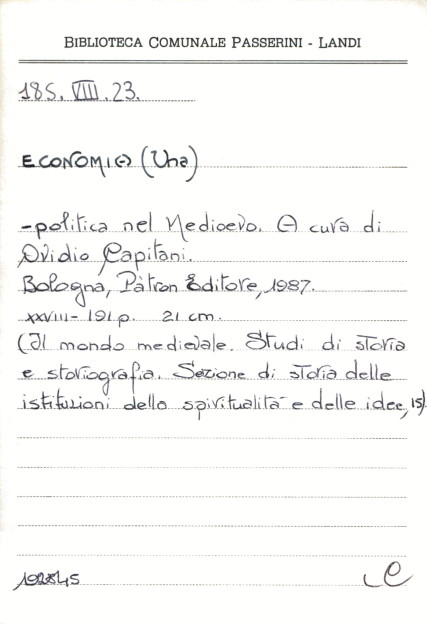 BIBLIOTECA COMUNALE PASSERINI - LANDI
185. VIII. 23.
ECONOMIA (Una)
-politica nel Medioevo. A cura di
Ovidio Capitani.
Bologna, Pàtron Editore, 1987.
XXVIII- 191 p. 21 cm.
(Il mondo medievale. Studi di storia
e storiografia. Sezione di storia delle
istituzioni della spiritualità e delle idee, 15)